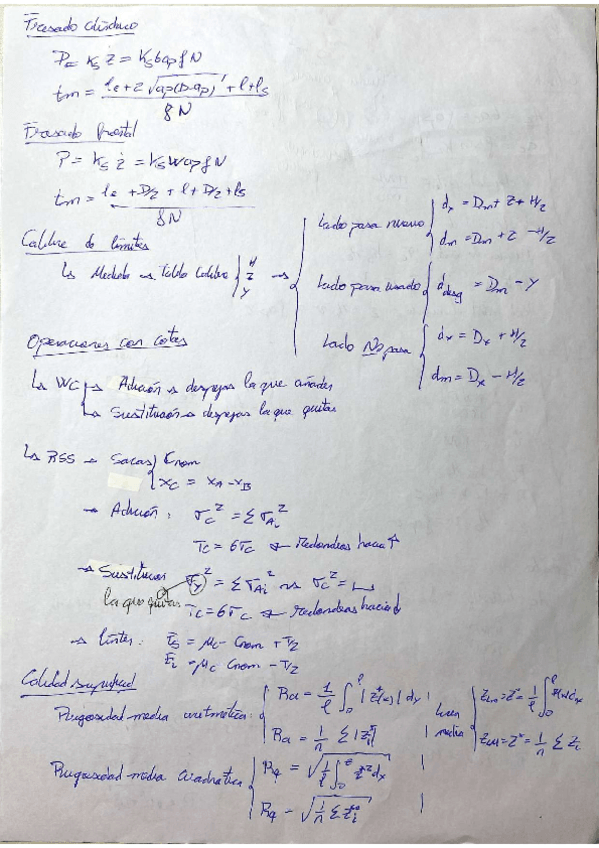 Fresado cilíndrico
P = Ks ż = Ks b ap f N
tm = (le + 2 √(ap(D-ap)) + l + ls) / fN
Fresado frontal
P = Ks ż = Ks W ap f N
tm = (le + D/2 + l + D/2 + ls) / fN
Calibre de límites
↳ Medida → tabla calibre { H Z Y →
Lado pasa nuevo { dx = Dm + Z + H/2
dm = Dm + Z - H/2
Lado pasa usado { ddesg = Dm - Y
Lado No pasa { dx = Dx + H/2
dm = Dx - H/2
Operaciones con cotas
↳ WC ↳ Adición → despejas la que añades
↳ Sustitución → despejas la que quitas
↳ RSS → Sacas { Cnom
xC = xA - xB
→ Adición: σC² = Σ σAi²
TC = 6σC ← redondeas hacia ↑
→ Sustitución σx² = Σ σAi² → σC² = ↳
la que quitas TC = 6σC ← redondeas hacia ↓
→ límites: Es = μC - Cnom + T/2
Ei = μC - Cnom - T/2
Calidad superficial
Rugosidad media aritmética: { Ra = 1/l ∫₀ˡ |z*(x)| dx
Ra = 1/n Σ |zi*|
Línea media { zLm = z* = 1/l ∫₀ˡ z(x) dx
zLm = z* = 1/n Σ zi
Rugosidad media cuadrática { Rq = √(1/l ∫₀ˡ z² dx)
Rq = √(1/n Σ zi²)